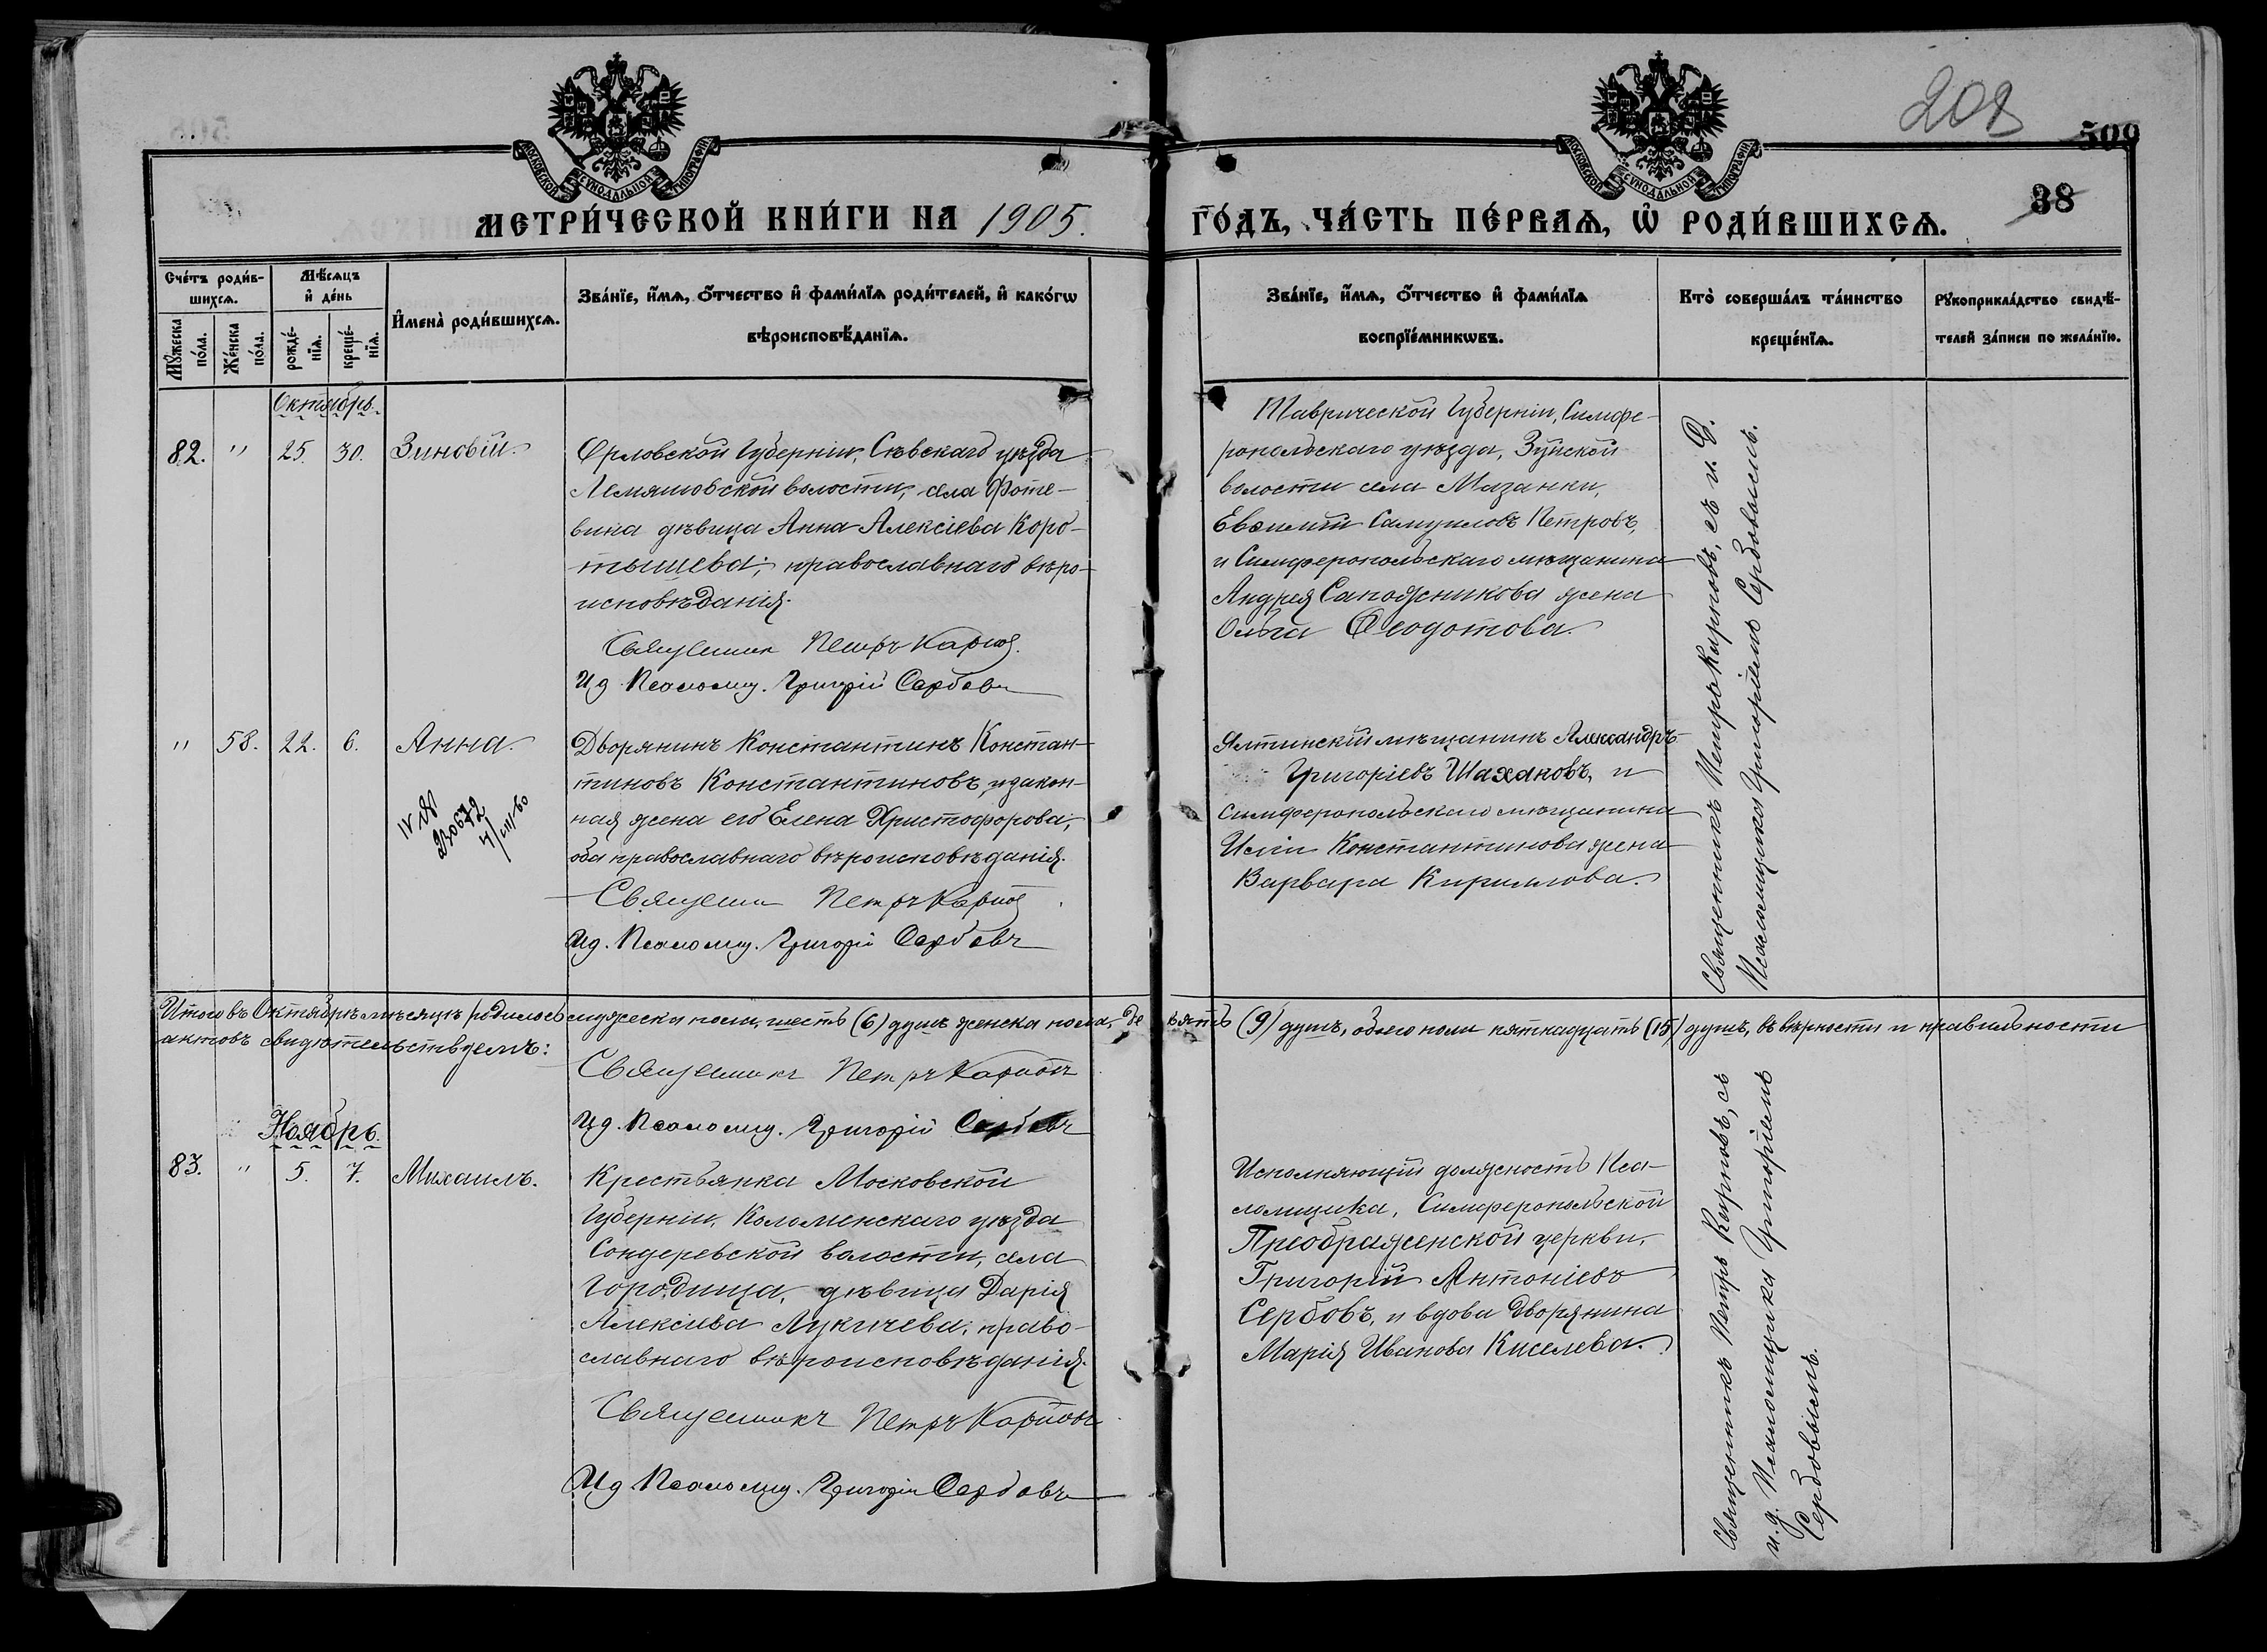 208
509
38
МОСКОВСКОЙ СѴНОДАЛЬНОЙ ТИПОГРАФІИ
МОСКОВСКОЙ СѴНОДАЛЬНОЙ ТИПОГРАФІИ
МЕТРИ́ЧЕСКОЙ КНИ́ГИ НА 1905.
ГО́ДЪ, ЧА́СТЬ ПЕ́РВАѦ, Ѡ҆ РОДИ́ВШИХСѦ.
Сче́тъ роди́в-
шихсѧ.
Мꙋ́жеска по́ла.
Же́нска по́ла.
Мѣ́сѧцъ
и҆ де́нь
рожде́-
нїѧ.
креще́-
нїѧ.
И҆мена̀ роди́вшихсѧ.
Зва́нїе, и҆́мѧ, ѻ҆́тчество и҆ фами́лїѧ роди́телей, и҆ како́гѡ
вѣроисповѣ́данїѧ.
Зва́нїе, и҆́мѧ, ѻ҆́тчество и҆ фами́лїѧ
воспрїе́мникѡвъ.
Кто̀ соверша́лъ та́инство
креще́нїѧ.
Рꙋкоприкла́дство свидѣ́-
телей за́писи по жела́нїю.
Октябрь.
82. " 25. 30. Зиновій.
Орловской Губерніи, Сѣвскаго уѣзда
Лемяшовской волости, села Фоте-
вина дѣвица Анна Алексіева Коро-
тышева; православнаго вѣро-
исповѣданія.
Священник Петръ Карпов.
И д. Псаломщ. Григорій Сербовъ
Таврической Губерніи, Симфе-
ропольскаго уѣзда, Зуйской
волости села Мазанки,
Евѳимій Самуиловъ Петровъ,
и Симферопольскаго мѣщанина
Андрея Сапожникова жена
Ольга Ѳеодотова.
Священникъ Петръ Карповъ, съ и. д.
Псаломщика Григоріемъ Сербовымъ.
" 58. 22. 6. Анна.
IV
230672
Дворянинъ Константинъ Констан-
тиновъ Константиновъ, и закон-
ная жена его Елена Христофорова,
оба православнаго вѣроисповѣданія.
Священник Петръ Карпов
И д. Псаломщ. Григорій Сербовъ
Ялтинскій мѣщанинъ Александръ
Григоріевъ Шахановъ, и
симферопольскаго мѣщанина
Иліи Константинова жена
Варвара Кириллова.
Итого въ Октябрѣ мѣсяцѣ родилось мужеска пола, шесть (6) душъ женска пола, девять (9) душъ, обоего пола пятнадцать (15) душъ, въ вѣрности и правильности
актовъ свидѣтельствуемъ:
Священникъ Петръ Карповъ
И д. Псаломщ. Григорій Сербовъ
Ноябрь.
83. " 5. 7. Михаилъ.
Крестьянка Московской
Губерніи, Коломенскаго уѣзда
Сондеревской волости, села
Городища, дѣвица Дарія
Алексіева Лукичева, право-
славнаго вѣроисповѣданія.
Священникъ Петръ Карповъ
И д Псаломщ. Григорій Сербовъ
Исполняющій должность Пса-
ломщика, Симферопольской
Преображенской церкви,
Григорій Антоніевъ
Сербовъ, и вдова Дворянина
Марія Иванова Киселева.
Священникъ Петръ Карповъ, съ
и. д. Псаломщика Григоріемъ
Сербовымъ.